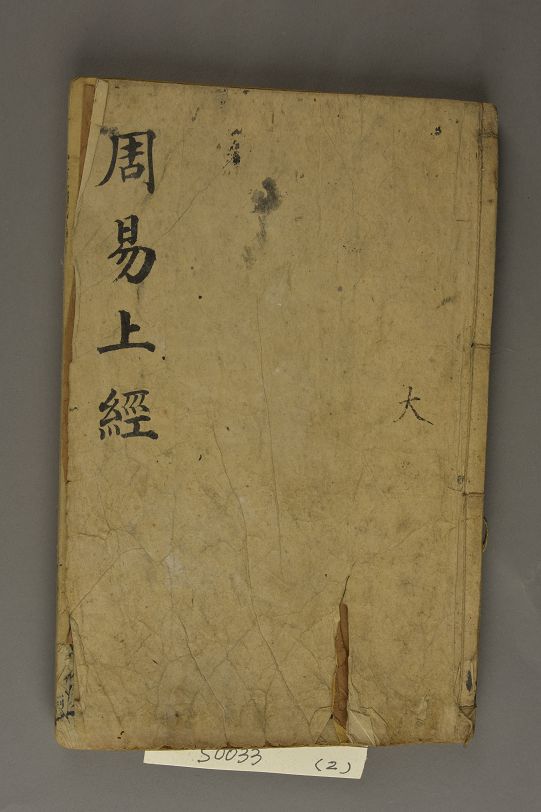 周易上經
大
S0033 (2)